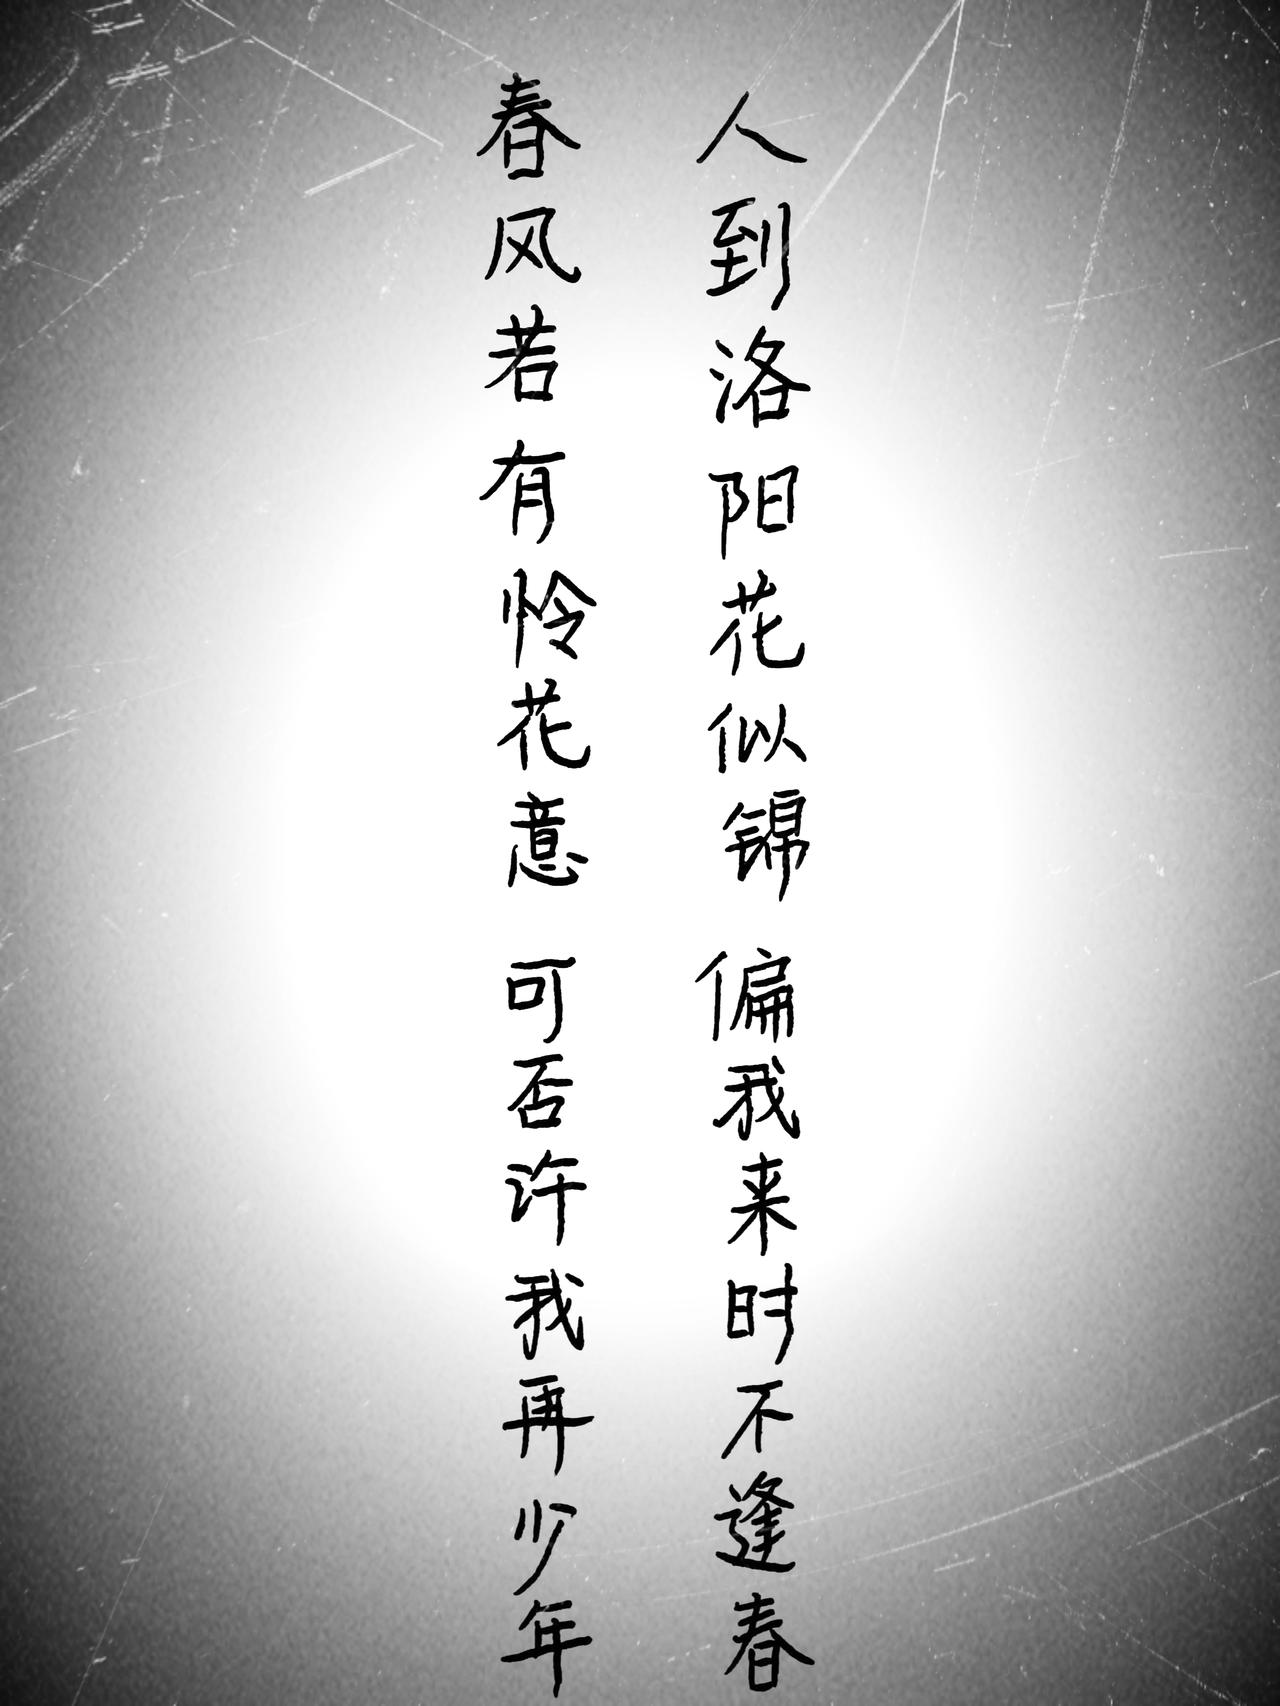 人到洛阳花似锦 偏我来时不逢春
春风若有怜花意 可否许我再少年